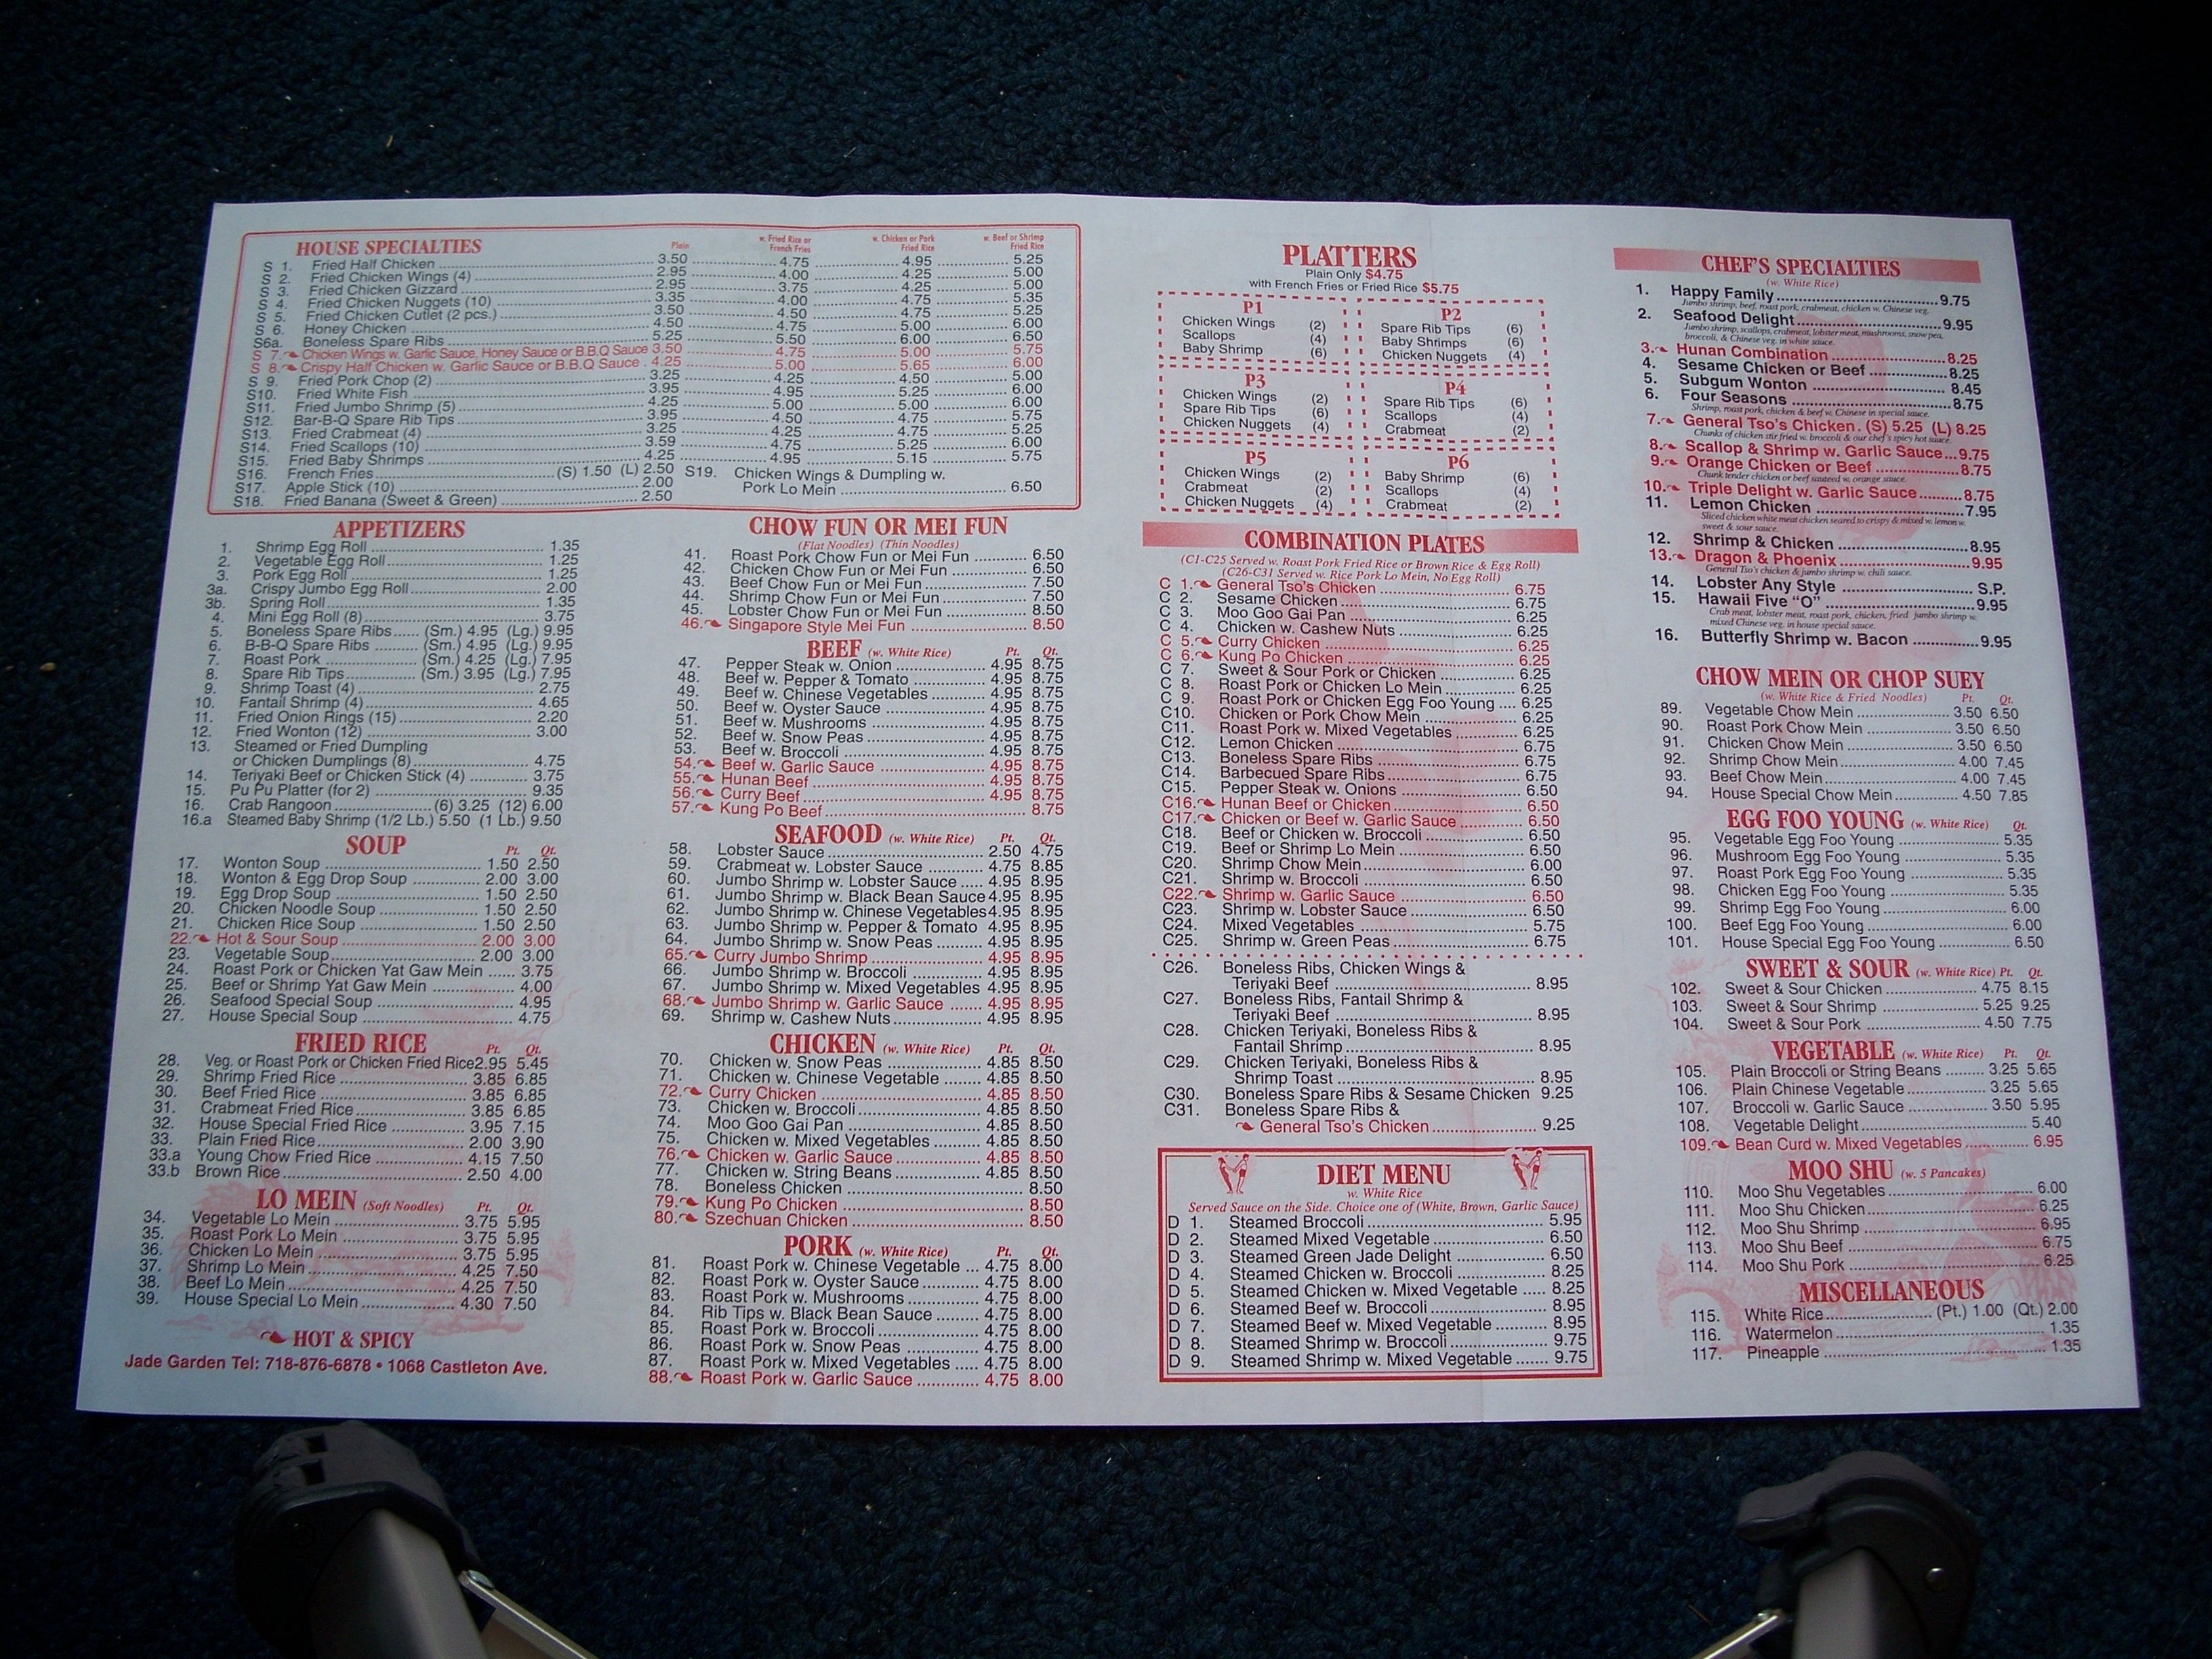 HOUSE SPECIALTIES Plain w. Fried Rice or French Fries w. Chicken or Pork Fried Rice w. Beef or Shrimp Fried Rice
S 1. Fried Half Chicken 3.50 4.75 4.95 5.25
S 2. Fried Chicken Wings (4) 2.95 4.00 4.25 5.00
S 3. Fried Chicken Gizzard 2.95 3.75 4.25 5.00
S 4. Fried Chicken Nuggets (10) 3.35 4.00 4.75 5.35
S 5. Fried Chicken Cutlet (2 pcs.) 3.50 4.50 4.75 5.25
S 6. Honey Chicken 4.50 4.75 5.00 6.00
S6a. Boneless Spare Ribs 5.25 5.50 6.00 6.50
S 7. Chicken Wings w. Garlic Sauce, Honey Sauce or B.B.Q Sauce 3.50 4.75 5.00 5.75
S 8. Crispy Half Chicken w. Garlic Sauce or B.B.Q Sauce 4.25 5.00 5.65 6.00
S 9. Fried Pork Chop (2) 3.25 4.25 4.50 5.00
S10. Fried White Fish 3.95 4.95 5.25 6.00
S11. Fried Jumbo Shrimp (5) 4.25 5.00 5.00 6.00
S12. Bar-B-Q Spare Rib Tips 3.95 4.50 4.75 5.75
S13. Fried Crabmeat (4) 3.25 4.25 4.75 5.25
S14. Fried Scallops (10) 3.59 4.75 5.25 6.00
S15. Fried Baby Shrimps 4.25 4.95 5.15 5.75
S16. French Fries (S) 1.50 (L) 2.50
S17. Apple Stick (10) 2.00
S18. Fried Banana (Sweet & Green) 2.50
S19. Chicken Wings & Dumpling w.
Pork Lo Mein 6.50
APPETIZERS
1. Shrimp Egg Roll 1.35
2. Vegetable Egg Roll 1.25
3. Pork Egg Roll 1.25
3a. Crispy Jumbo Egg Roll 2.00
3b. Spring Roll 1.35
4. Mini Egg Roll (8) 3.75
5. Boneless Spare Ribs (Sm.) 4.95 (Lg.) 9.95
6. B-B-Q Spare Ribs (Sm.) 4.95 (Lg.) 9.95
7. Roast Pork (Sm.) 4.25 (Lg.) 7.95
8. Spare Rib Tips (Sm.) 3.95 (Lg.) 7.95
9. Shrimp Toast (4) 2.75
10. Fantail Shrimp (4) 4.65
11. Fried Onion Rings (15) 2.20
12. Fried Wonton (12) 3.00
13. Steamed or Fried Dumpling
or Chicken Dumplings (8) 4.75
14. Teriyaki Beef or Chicken Stick (4) 3.75
15. Pu Pu Platter (for 2) 9.35
16. Crab Rangoon (6) 3.25 (12) 6.00
16.a Steamed Baby Shrimp (1/2 Lb.) 5.50 (1 Lb.) 9.50
SOUP Pt. Qt.
17. Wonton Soup 1.50 2.50
18. Wonton & Egg Drop Soup 2.00 3.00
19. Egg Drop Soup 1.50 2.50
20. Chicken Noodle Soup 1.50 2.50
21. Chicken Rice Soup 1.50 2.50
22. Hot & Sour Soup 2.00 3.00
23. Vegetable Soup 2.00 3.00
24. Roast Pork or Chicken Yat Gaw Mein 3.75
25. Beef or Shrimp Yat Gaw Mein 4.00
26. Seafood Special Soup 4.95
27. House Special Soup 4.75
FRIED RICE Pt. Qt.
28. Veg. or Roast Pork or Chicken Fried Rice 2.95 5.45
29. Shrimp Fried Rice 3.85 6.85
30. Beef Fried Rice 3.85 6.85
31. Crabmeat Fried Rice 3.85 6.85
32. House Special Fried Rice 3.95 7.15
33. Plain Fried Rice 2.00 3.90
33.a Young Chow Fried Rice 4.15 7.50
33.b Brown Rice 2.50 4.00
LO MEIN (Soft Noodles) Pt. Qt.
34. Vegetable Lo Mein 3.75 5.95
35. Roast Pork Lo Mein 3.75 5.95
36. Chicken Lo Mein 3.75 5.95
37. Shrimp Lo Mein 4.25 7.50
38. Beef Lo Mein 4.25 7.50
39. House Special Lo Mein 4.30 7.50
HOT & SPICY
Jade Garden Tel: 718-876-6878 • 1068 Castleton Ave.
CHOW FUN OR MEI FUN
(Flat Noodles) (Thin Noodles)
41. Roast Pork Chow Fun or Mei Fun 6.50
42. Chicken Chow Fun or Mei Fun 6.50
43. Beef Chow Fun or Mei Fun 7.50
44. Shrimp Chow Fun or Mei Fun 7.50
45. Lobster Chow Fun or Mei Fun 8.50
46. Singapore Style Mei Fun 8.50
BEEF (w. White Rice) Pt. Qt.
47. Pepper Steak w. Onion 4.95 8.75
48. Beef w. Pepper & Tomato 4.95 8.75
49. Beef w. Chinese Vegetables 4.95 8.75
50. Beef w. Oyster Sauce 4.95 8.75
51. Beef w. Mushrooms 4.95 8.75
52. Beef w. Snow Peas 4.95 8.75
53. Beef w. Broccoli 4.95 8.75
54. Beef w. Garlic Sauce 4.95 8.75
55. Hunan Beef 4.95 8.75
56. Curry Beef 4.95 8.75
57. Kung Po Beef 8.75
SEAFOOD (w. White Rice) Pt. Qt.
58. Lobster Sauce 2.50 4.75
59. Crabmeat w. Lobster Sauce 4.75 8.85
60. Jumbo Shrimp w. Lobster Sauce 4.95 8.95
61. Jumbo Shrimp w. Black Bean Sauce 4.95 8.95
62. Jumbo Shrimp w. Chinese Vegetables 4.95 8.95
63. Jumbo Shrimp w. Pepper & Tomato 4.95 8.95
64. Jumbo Shrimp w. Snow Peas 4.95 8.95
65. Curry Jumbo Shrimp 4.95 8.95
66. Jumbo Shrimp w. Broccoli 4.95 8.95
67. Jumbo Shrimp w. Mixed Vegetables 4.95 8.95
68. Jumbo Shrimp w. Garlic Sauce 4.95 8.95
69. Shrimp w. Cashew Nuts 4.95 8.95
CHICKEN (w. White Rice) Pt. Qt.
70. Chicken w. Snow Peas 4.85 8.50
71. Chicken w. Chinese Vegetable 4.85 8.50
72. Curry Chicken 4.85 8.50
73. Chicken w. Broccoli 4.85 8.50
74. Moo Goo Gai Pan 4.85 8.50
75. Chicken w. Mixed Vegetables 4.85 8.50
76. Chicken w. Garlic Sauce 4.85 8.50
77. Chicken w. String Beans 4.85 8.50
78. Boneless Chicken 8.50
79. Kung Po Chicken 8.50
80. Szechuan Chicken 8.50
PORK (w. White Rice) Pt. Qt.
81. Roast Pork w. Chinese Vegetable 4.75 8.00
82. Roast Pork w. Oyster Sauce 4.75 8.00
83. Roast Pork w. Mushrooms 4.75 8.00
84. Rib Tips w. Black Bean Sauce 4.75 8.00
85. Roast Pork w. Broccoli 4.75 8.00
86. Roast Pork w. Snow Peas 4.75 8.00
87. Roast Pork w. Mixed Vegetables 4.75 8.00
88. Roast Pork w. Garlic Sauce 4.75 8.00
PLATTERS
Plain Only $4.75
with French Fries or Fried Rice $5.75
P1
Chicken Wings (2)
Scallops (4)
Baby Shrimp (6)
P2
Spare Rib Tips (6)
Baby Shrimps (6)
Chicken Nuggets (4)
P3
Chicken Wings (2)
Spare Rib Tips (6)
Chicken Nuggets (4)
P4
Spare Rib Tips (6)
Scallops (4)
Crabmeat (2)
P5
Chicken Wings (2)
Crabmeat (2)
Chicken Nuggets (4)
P6
Baby Shrimp (6)
Scallops (4)
Crabmeat (2)
COMBINATION PLATES
(C1-C25 Served w. Roast Pork Fried Rice or Brown Rice & Egg Roll)
(C26-C31 Served w. Rice Pork Lo Mein, No Egg Roll)
C 1. General Tso's Chicken 6.75
C 2. Sesame Chicken 6.75
C 3. Moo Goo Gai Pan 6.25
C 4. Chicken w. Cashew Nuts 6.25
C 5. Curry Chicken 6.25
C 6. Kung Po Chicken 6.25
C 7. Sweet & Sour Pork or Chicken 6.25
C 8. Roast Pork or Chicken Lo Mein 6.25
C 9. Roast Pork or Chicken Egg Foo Young 6.25
C10. Chicken or Pork Chow Mein 6.25
C11. Roast Pork w. Mixed Vegetables 6.25
C12. Lemon Chicken 6.75
C13. Boneless Spare Ribs 6.75
C14. Barbecued Spare Ribs 6.75
C15. Pepper Steak w. Onions 6.50
C16. Hunan Beef or Chicken 6.50
C17. Chicken or Beef w. Garlic Sauce 6.50
C18. Beef or Chicken w. Broccoli 6.50
C19. Beef or Shrimp Lo Mein 6.50
C20. Shrimp Chow Mein 6.00
C21. Shrimp w. Broccoli 6.50
C22. Shrimp w. Garlic Sauce 6.50
C23. Shrimp w. Lobster Sauce 6.50
C24. Mixed Vegetables 5.75
C25. Shrimp w. Green Peas 6.75
C26. Boneless Ribs, Chicken Wings &
Teriyaki Beef 8.95
C27. Boneless Ribs, Fantail Shrimp &
Teriyaki Beef 8.95
C28. Chicken Teriyaki, Boneless Ribs &
Fantail Shrimp 8.95
C29. Chicken Teriyaki, Boneless Ribs &
Shrimp Toast 8.95
C30. Boneless Spare Ribs & Sesame Chicken 9.25
C31. Boneless Spare Ribs &
General Tso's Chicken 9.25
DIET MENU
w. White Rice
Served Sauce on the Side. Choice one of (White, Brown, Garlic Sauce)
D 1. Steamed Broccoli 5.95
D 2. Steamed Mixed Vegetable 6.50
D 3. Steamed Green Jade Delight 6.50
D 4. Steamed Chicken w. Broccoli 8.25
D 5. Steamed Chicken w. Mixed Vegetable 8.25
D 6. Steamed Beef w. Broccoli 8.95
D 7. Steamed Beef w. Mixed Vegetable 8.95
D 8. Steamed Shrimp w. Broccoli 9.75
D 9. Steamed Shrimp w. Mixed Vegetable 9.75
CHEF'S SPECIALTIES
(w. White Rice)
1. Happy Family 9.75
Jumbo shrimp, beef, roast pork, crabmeat, chicken w. Chinese veg.
2. Seafood Delight 9.95
Jumbo shrimp, scallops, crabmeat, lobster meat, mushrooms, snow pea,
broccoli, & Chinese veg. in white sauce.
3. Hunan Combination 8.25
4. Sesame Chicken or Beef 8.25
5. Subgum Wonton 8.45
6. Four Seasons 8.75
Shrimp, roast pork, chicken & beef w. Chinese in special sauce.
7. General Tso's Chicken. (S) 5.25 (L) 8.25
Chunks of chicken stir fried w. broccoli & our chef's spicy hot sauce.
8. Scallop & Shrimp w. Garlic Sauce 9.75
9. Orange Chicken or Beef 8.75
Chunk tender chicken or beef sauteed w. orange sauce.
10. Triple Delight w. Garlic Sauce 8.75
11. Lemon Chicken 7.95
Sliced chicken white meat chicken seared to crispy & mixed w. lemon w.
sweet & sour sauce.
12. Shrimp & Chicken 8.95
13. Dragon & Phoenix 9.95
General Tso's chicken & jumbo shrimp w. chili sauce.
14. Lobster Any Style S.P.
15. Hawaii Five "O" 9.95
Crab meat, lobster meat, roast pork, chicken, fried jumbo shrimp w.
mixed Chinese veg. in house special sauce.
16. Butterfly Shrimp w. Bacon 9.95
CHOW MEIN OR CHOP SUEY
(w. White Rice & Fried Noodles) Pt. Qt.
89. Vegetable Chow Mein 3.50 6.50
90. Roast Pork Chow Mein 3.50 6.50
91. Chicken Chow Mein 3.50 6.50
92. Shrimp Chow Mein 4.00 7.45
93. Beef Chow Mein 4.00 7.45
94. House Special Chow Mein 4.50 7.85
EGG FOO YOUNG (w. White Rice) Qt.
95. Vegetable Egg Foo Young 5.35
96. Mushroom Egg Foo Young 5.35
97. Roast Pork Egg Foo Young 5.35
98. Chicken Egg Foo Young 5.35
99. Shrimp Egg Foo Young 6.00
100. Beef Egg Foo Young 6.00
101. House Special Egg Foo Young 6.50
SWEET & SOUR (w. White Rice) Pt. Qt.
102. Sweet & Sour Chicken 4.75 8.15
103. Sweet & Sour Shrimp 5.25 9.25
104. Sweet & Sour Pork 4.50 7.75
VEGETABLE (w. White Rice) Pt. Qt.
105. Plain Broccoli or String Beans 3.25 5.65
106. Plain Chinese Vegetable 3.25 5.65
107. Broccoli w. Garlic Sauce 3.50 5.95
108. Vegetable Delight 5.40
109. Bean Curd w. Mixed Vegetables 6.95
MOO SHU (w. 5 Pancakes)
110. Moo Shu Vegetables 6.00
111. Moo Shu Chicken 6.25
112. Moo Shu Shrimp 6.95
113. Moo Shu Beef 6.75
114. Moo Shu Pork 6.25
MISCELLANEOUS
115. White Rice (Pt.) 1.00 (Qt.) 2.00
116. Watermelon 1.35
117. Pineapple 1.35